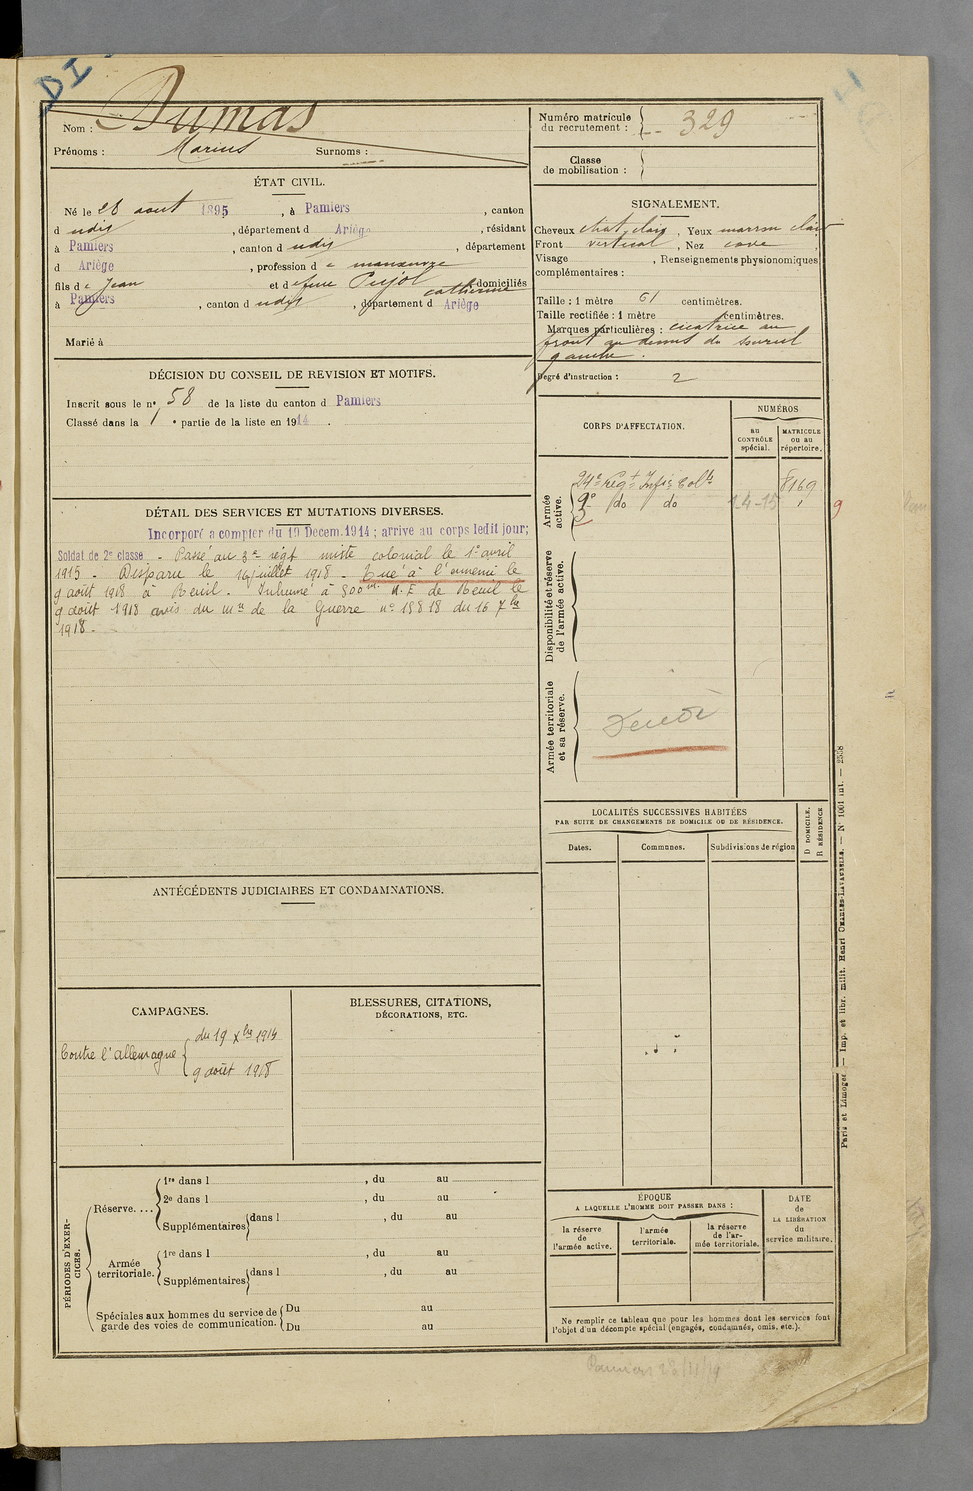 DI
Nom : Dumas
Prénoms : Marius Surnoms :
Numéro matricule du recrutement : 329
Classe de mobilisation :
ÉTAT CIVIL.
Né le 28 aout 1895, à Pamiers, canton
d udit, département d Ariège, résidant
à Pamiers, canton d udit, département
d Ariège, profession d e manœuvre
fils d e Jean et d e feue Pujol Catherine domiciliés
à Pamiers, canton d udit, département d Ariège
Marié à
SIGNALEMENT.
Cheveux chat. clair, Yeux marron clair
Front vertical, Nez cave
Visage , Renseignements physionomiques
complémentaires :
Taille : 1 mètre 61 centimètres.
Taille rectifiée : 1 mètre centimètres.
Marques particulières : cicatrice au
front au dessus du sourcil
gauche.
Degré d'instruction : 2
DÉCISION DU CONSEIL DE REVISION ET MOTIFS.
Inscrit sous le nº 58 de la liste du canton d Pamiers
Classé dans la 1 e partie de la liste en 1914.
DÉTAIL DES SERVICES ET MUTATIONS DIVERSES.
Incorporé a compter du 19 Decem. 1914 ; arrive au corps ledit jour;
Soldat de 2e classe - Passé au 3e régt mixte colonial le 1er avril
1915 - Disparu le 16 juillet 1918 - Tué à l'ennemi le
9 août 1918 à Reuil. Inhumé à 500m N.E de Reuil le
9 août 1918 avis du mre de la Guerre nº 15818 du 16 7bre
1918.-
CORPS D'AFFECTATION.
NUMÉROS
au CONTRÔLE spécial.
MATRICULE ou au répertoire.
Armée active.
24e Régt Infie Colle 8169
do do 14-15
9
Disponibilité et réserve de l'armée active.
Armée territoriale et sa réserve.
LOCALITÉS SUCCESSIVES HABITÉES
PAR SUITE DE CHANGEMENTS DE DOMICILE OU DE RÉSIDENCE.
Dates. Communes. Subdivisions de région
D DOMICILE. R RÉSIDENCE
ANTÉCÉDENTS JUDICIAIRES ET CONDAMNATIONS.
CAMPAGNES.
Contre l'allemagne
du 19 Xbre 1914
9 août 1918
BLESSURES, CITATIONS,
DÉCORATIONS, ETC.
PÉRIODES D'EXERCICES.
Réserve....
1re dans l , du au
2e dans l , du au
Supplémentaires dans l , du au
Armée territoriale.
1re dans l , du au
Supplémentaires dans l , du au
Spéciales aux hommes du service de garde des voies de communication.
Du au
Du au
ÉPOQUE
A LAQUELLE L'HOMME DOIT PASSER DANS :
la réserve de l'armée active.
l'armée territoriale.
la réserve de l'armée territoriale.
DATE de LA LIBÉRATION du service militaire.
Ne remplir ce tableau que pour les hommes dont les services font
l'objet d'un décompte spécial (engagés, condamnés, omis, etc.).
Paris et Limoges. — Imp. et libr. milit. Henri CHARLES-LAVAUZELLE. — Nº 1001 int. — 2558